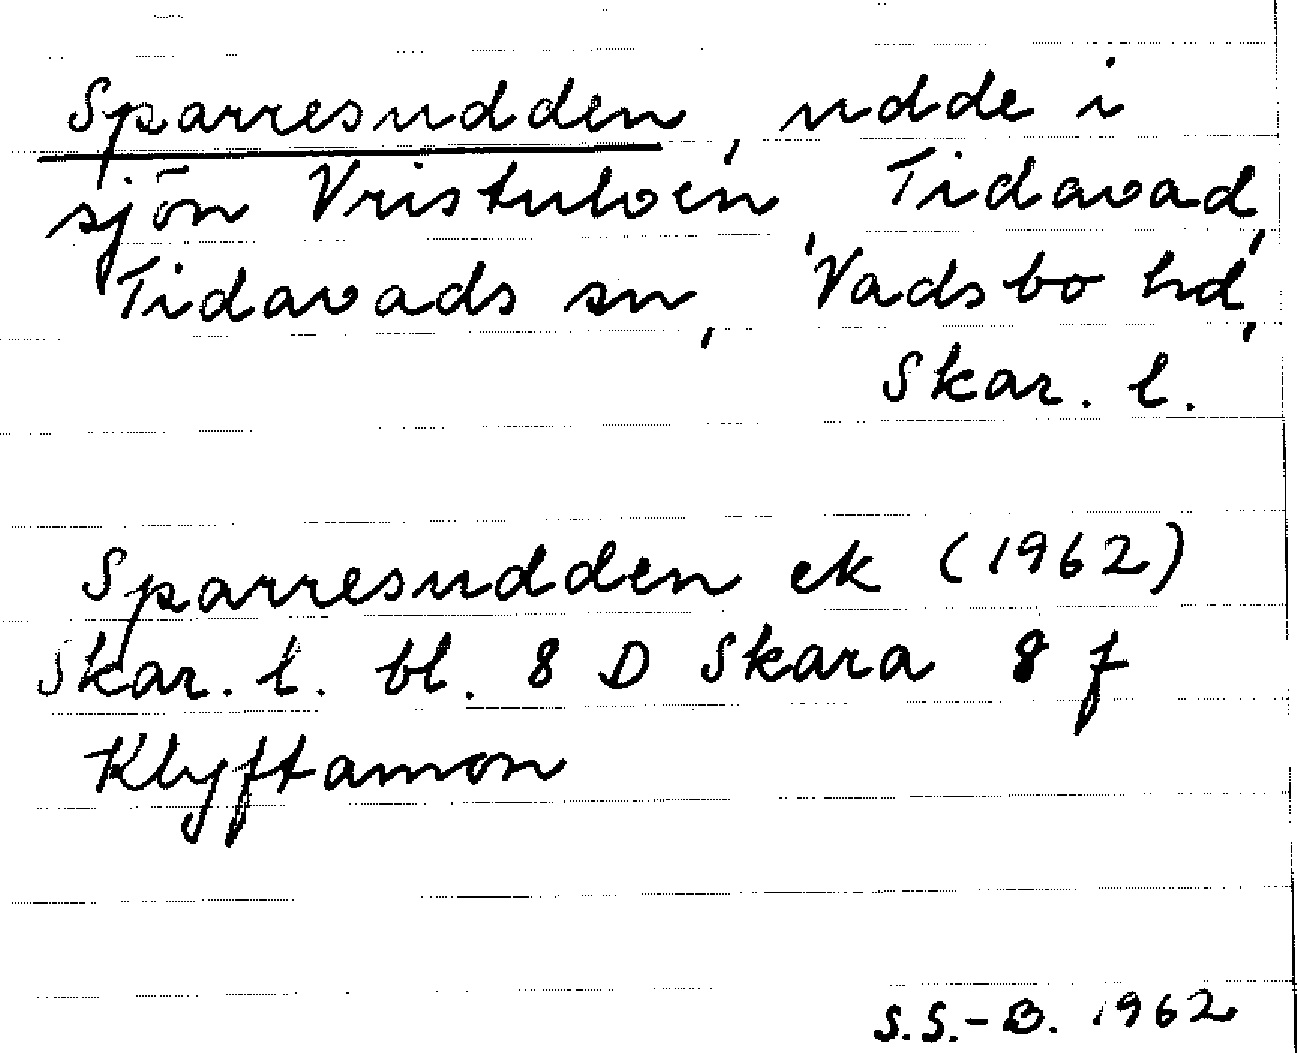 Sparresudden, udde i
sjön Vristulven, Tidavad,
Tidavads sn, Vadsbo hd,
Skar. l.
Sparresudden ek (1962)
Skar. l. bl. 8 D Skara 8 f
Klyftamon
S.S.-B. 1962